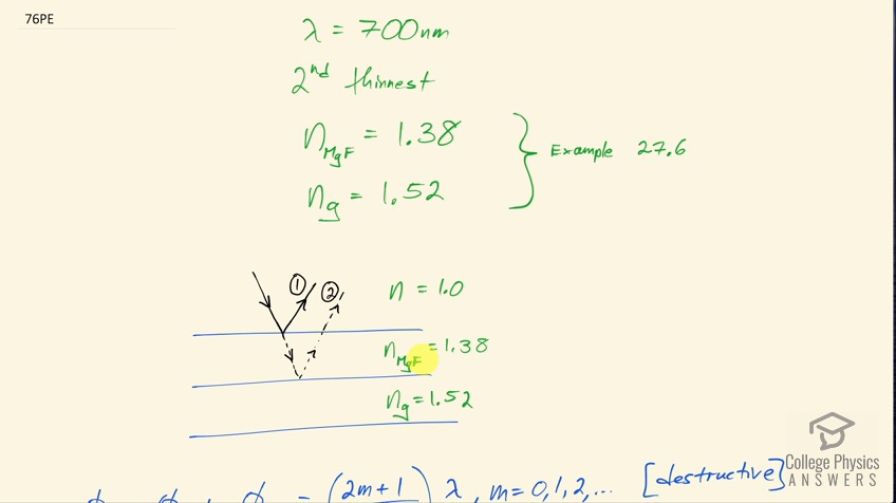 76PE
λ = 700nm
2nd thinnest
nMgF = 1.38
ng = 1.52
} Example 27.6
① ② n = 1.0
nMgF = 1.38
ng = 1.52
(2m+1) λ, m=0,1,2,... [destructive]
College Physics
ANSWERS